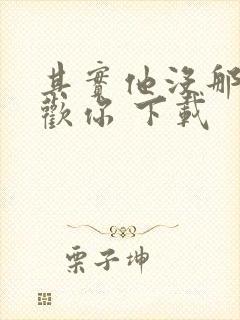 其實他沒那
歡你 下載
栗子坤